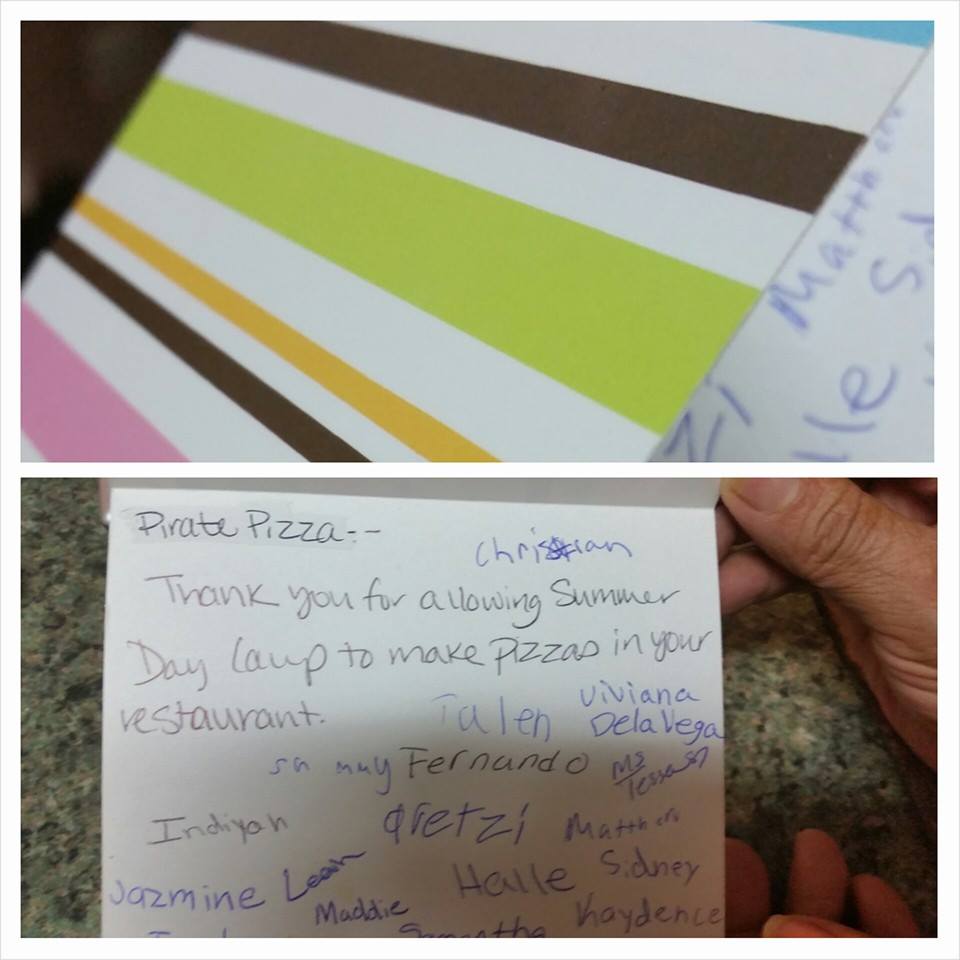 Matthew
Sid
zi
lle
Pirate Pizza--
Christian
Thank you for allowing Summer
Day Camp to make pizzas in your
restaurant.
Talen Viviana
DelaVega
Fernando Ms
Tessa
Indiyah Gretzi Matthew
Jazmine Leah Halle Sidney
Maddie Kaydence
Samantha